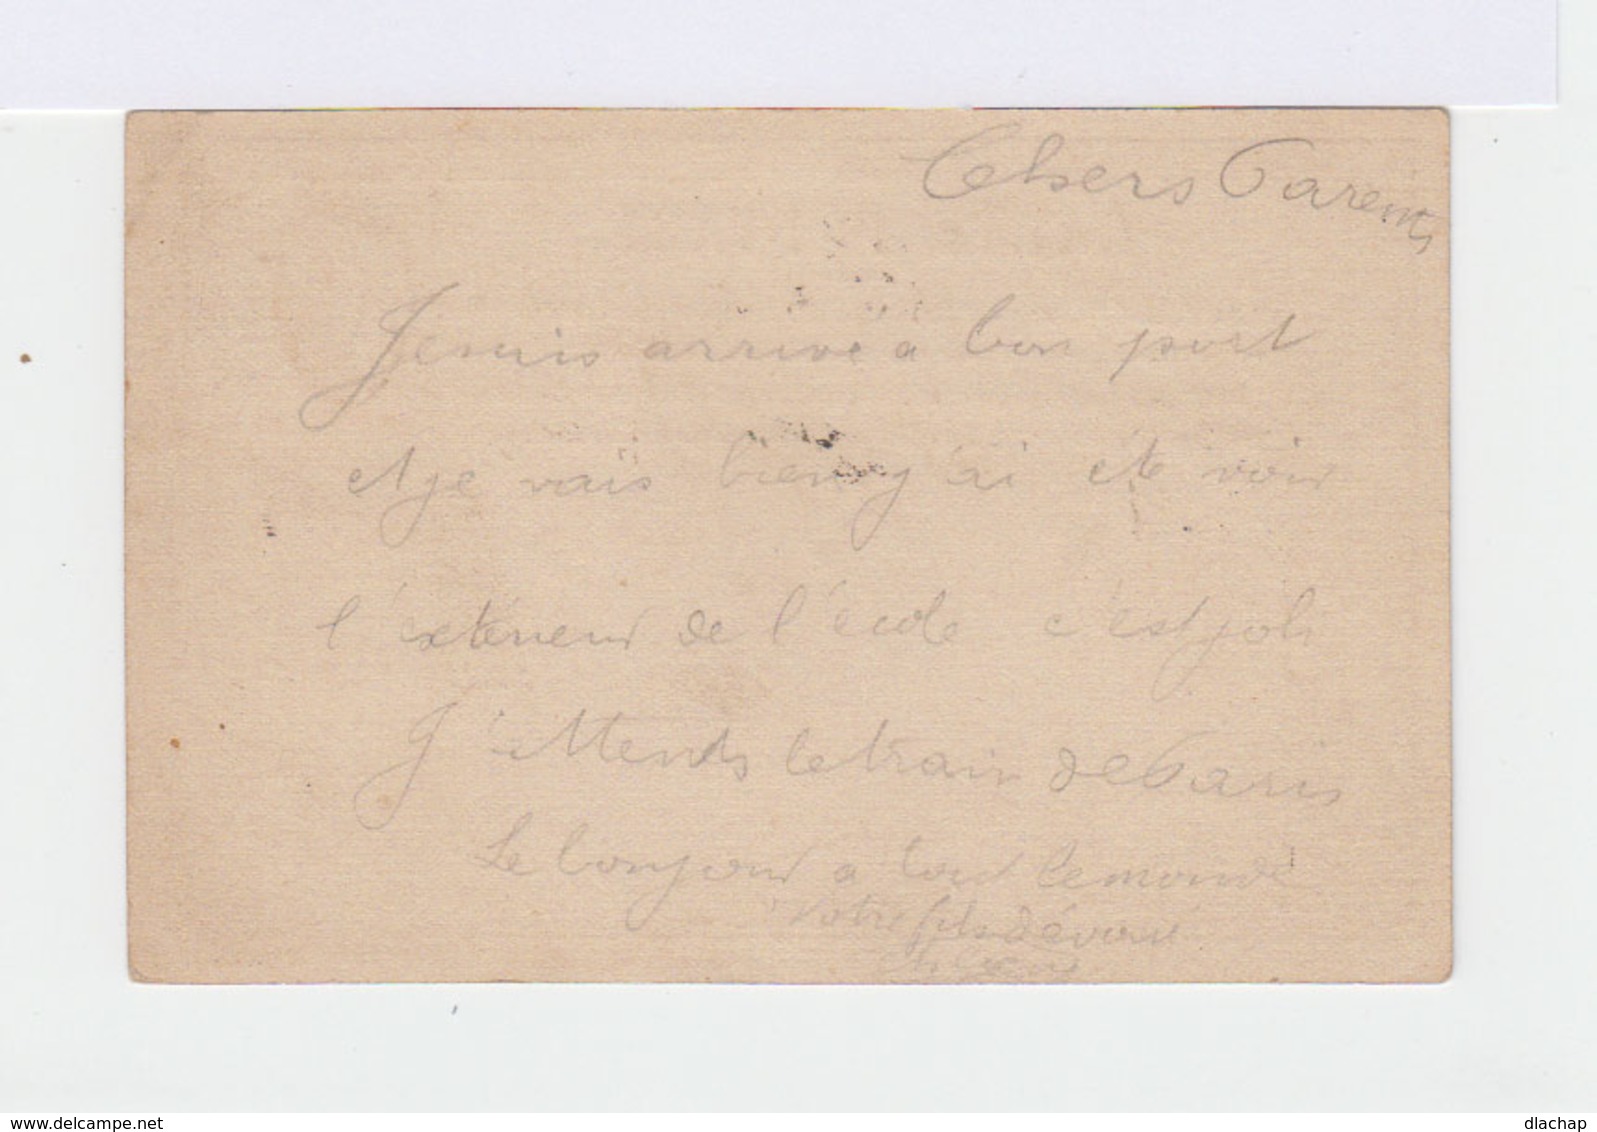 Chers Parents
Je suis arrivé a bon port
et je vais bien j'ai été voir
l'extérieur de l'école c'est joli
J'attends le train de Paris
Le bonjour a tout le monde
votre fils dévoué
www.delcampe.net
dlachap